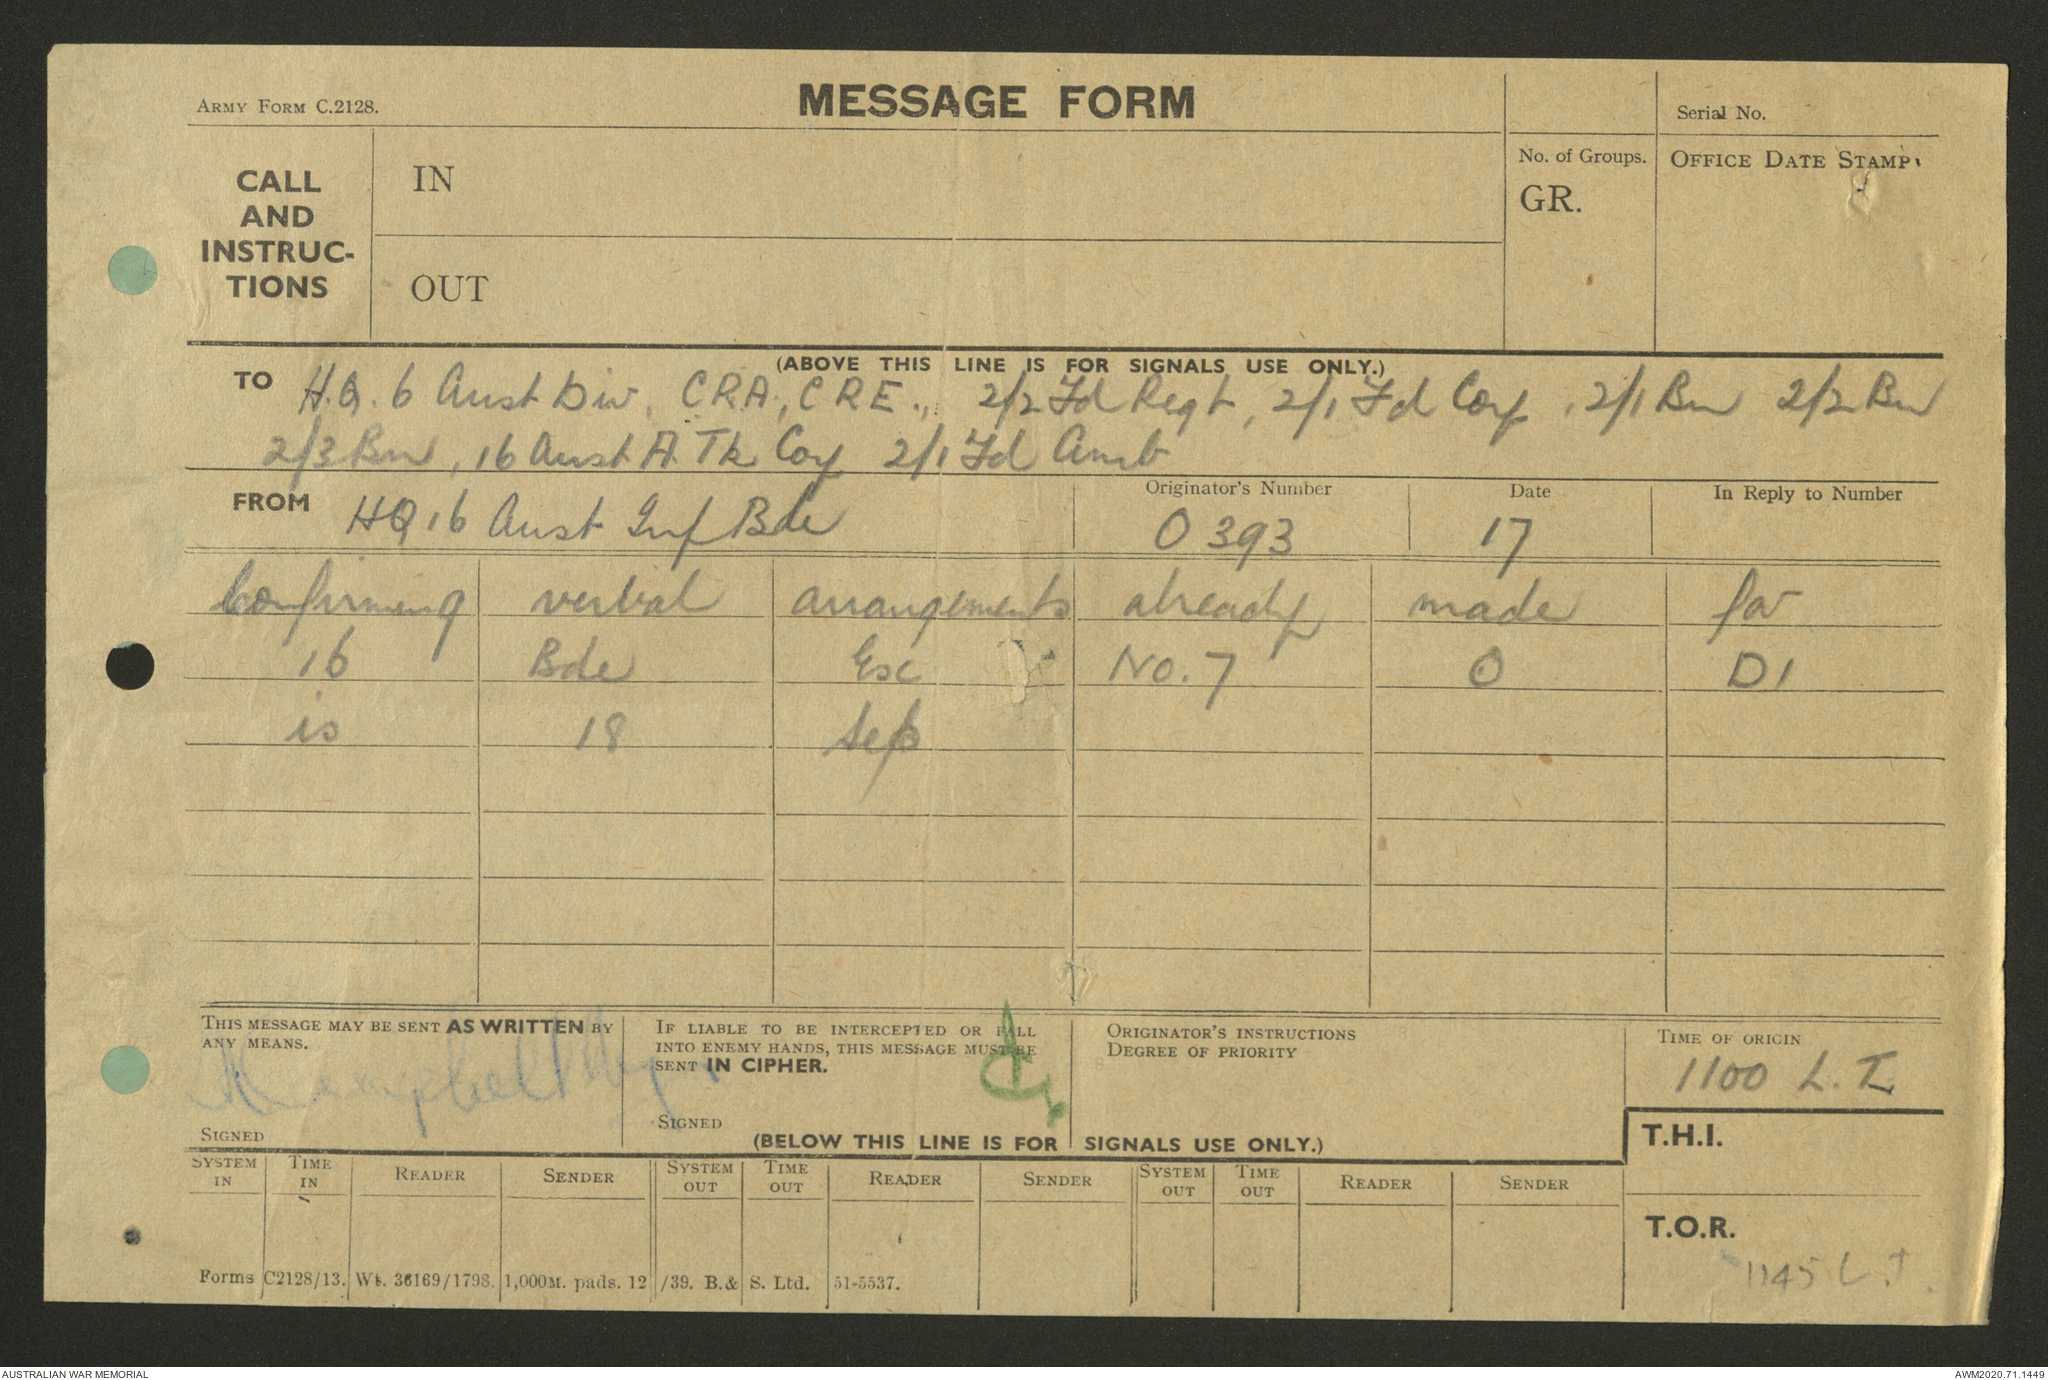 ARMY FORM C.2128.
MESSAGE FORM
Serial No.
CALL AND INSTRUC-TIONS
IN
OUT
No. of Groups.
GR.
OFFICE DATE STAMP.
(ABOVE THIS LINE IS FOR SIGNALS USE ONLY.)
TO H.Q. 6 Aust Div, CRA, CRE., 2/2 Fd Regt, 2/1 Fd Coy, 2/1 Bn 2/2 Bn
2/3 Bn, 16 Aust A.Tk Coy 2/1 Fd Amb
FROM HQ 16 Aust Inf Bde
Originator's Number
0 393
Date
17
In Reply to Number
Confirming verbal arrangements already made for
16 Bde Esc No. 7 O D1
is 18 Sep
THIS MESSAGE MAY BE SENT AS WRITTEN BY
ANY MEANS.
SIGNED
IF LIABLE TO BE INTERCEPTED OR FALL
INTO ENEMY HANDS, THIS MESSAGE MUST BE
SENT IN CIPHER.
SIGNED
ORIGINATOR'S INSTRUCTIONS
DEGREE OF PRIORITY
TIME OF ORIGIN
1100 L.T.
(BELOW THIS LINE IS FOR SIGNALS USE ONLY.)
T.H.I.
SYSTEM IN TIME IN READER SENDER SYSTEM OUT TIME OUT READER SENDER SYSTEM OUT TIME OUT READER SENDER
T.O.R.
1145 L.T.
Forms C2128/13. Wt. 36169/1798. 1,000M. pads. 12/39. B.& S. Ltd. 51-5537.
AUSTRALIAN WAR MEMORIAL
AWM2020.71.1449